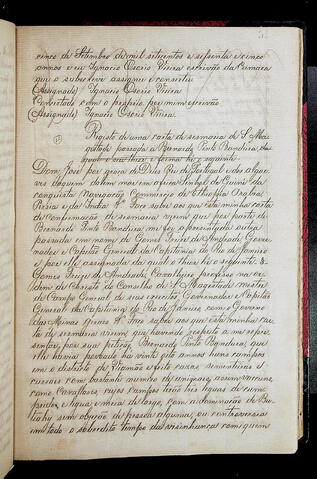 cinco de Setembro de mil setecentos e sessenta e cinco
annos e eu Ignacio Osorio Vieira escrivão da Camara
que o subscrevi assignei e consertei
(Assignado) Ignacio Osorio Vieira
Consertada com a propria por mim escrivão
(Assignado) Ignacio Osorio Vieira.
Registo de uma carta de sesmaria de S. Mag
estade passada a Bernardo Pinto Bandeira, da
qual o seu theor e forma he o seguinte.
Dom José por graça de Deus Rei de Portugal e dos Algar
ves daquem e dalem mar em Africa Senhor de Guiné e da
conquista navegação Commercio da Ethiopia Arabia
Persia e da India &. Faço saber aos que esta minha carta
de confirmação de sesmaria virem que por parte de
Bernardo Pinto Bandeira me foi apresentada outra
passada em nome de Gomes Freire de Andrade Gover
nador e Capitão General da Capitania do Rio de Janeiro
e por elle assignada da qual o theor he o seguinte.
Gomes Freire de Andrade, Cavalheiro professo na or
dem de Christo do Conselho de S. Magestade mestre
de Campo General de seus exercitos, Governador e Capitão
General da Capitania do Rio de Janeiro, com o Governo
das Minas Geraes &. Faço saber aos que esta minha car
ta de sesmaria virem que havendo respeito a me repre
sentar, por sua petição, Bernardo Pinto Bandeira, que
elle havia povoado ha vinte oito annos huns campos
em o districto de Viamão e feito casas, sementeiras e
curraes com bastante numero de animaes, assim vaccuns,
como Cavallares, cujos campos terão tres leguas de com
pridos, e legua e meia de largo, com a denominação de
sem opposição de pessoa alguma, ou controversia
em todo o sobredito tempo da visinhança com quem